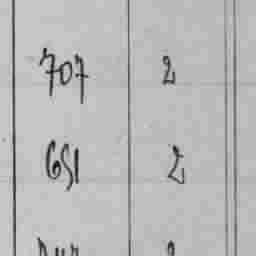 707 2
651 2